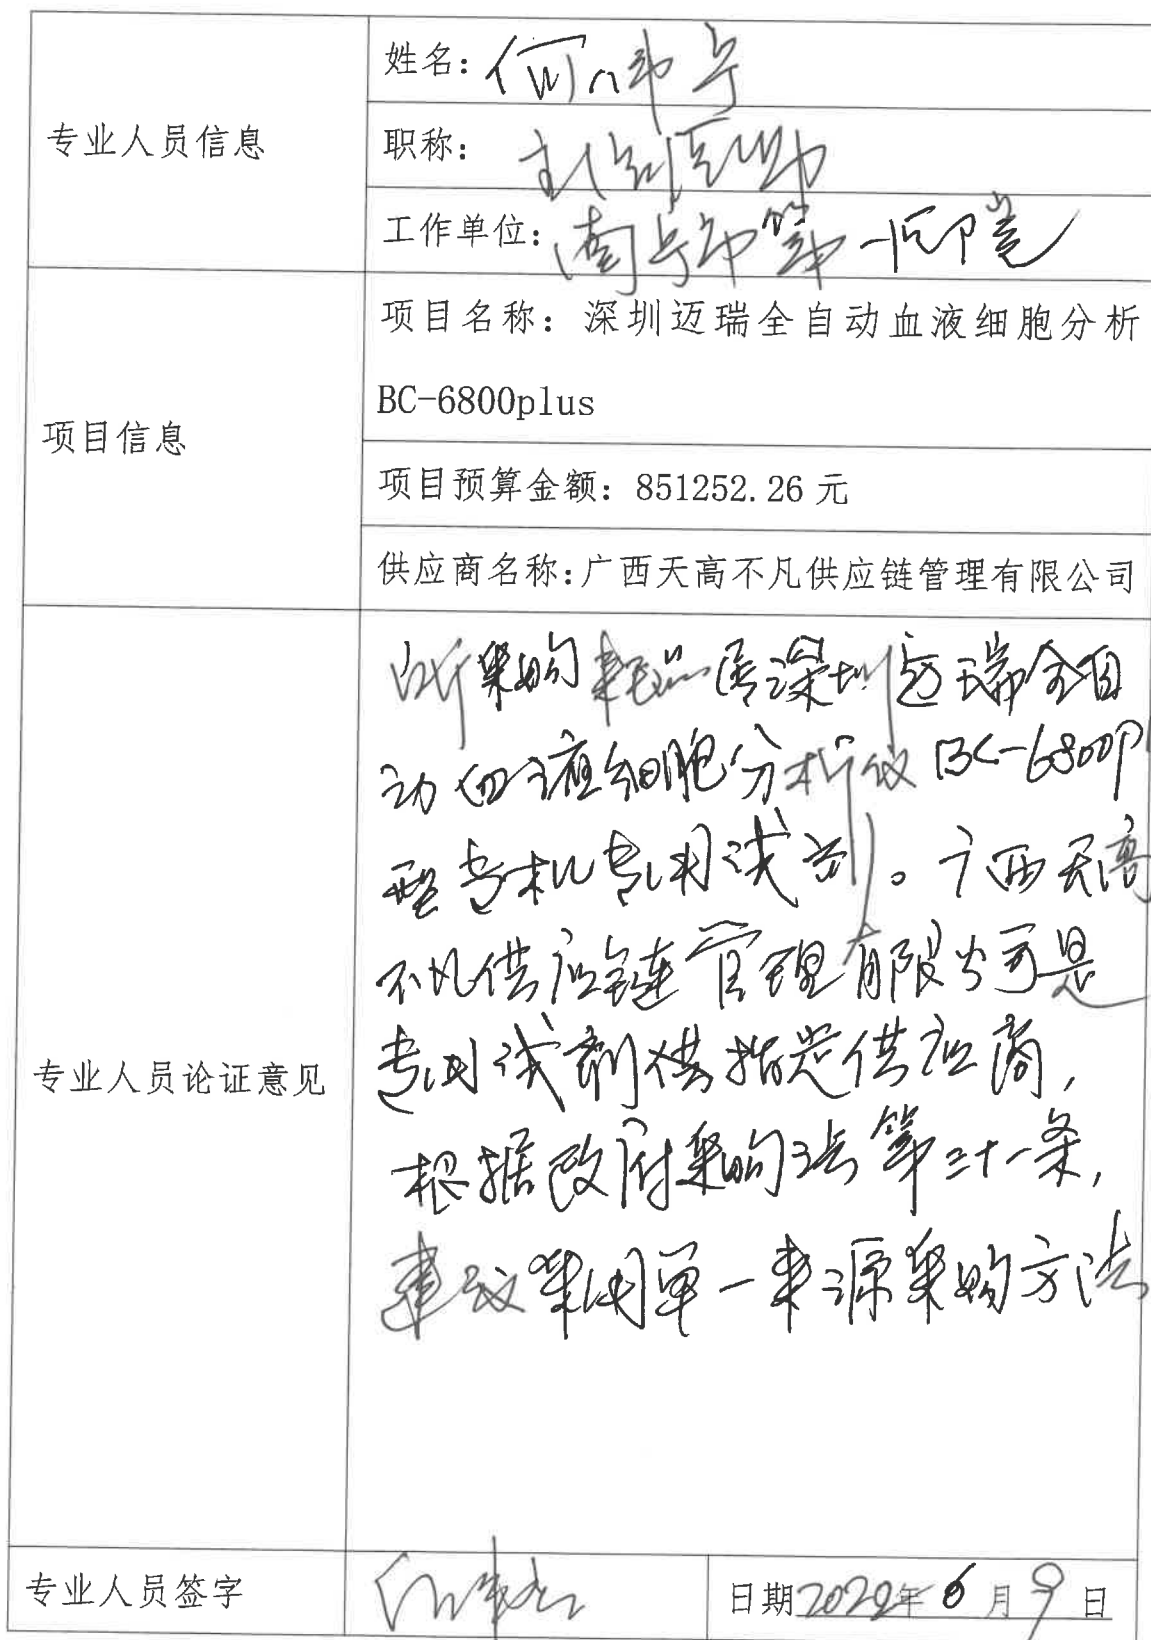 专业人员信息
姓名：何
职称：主任医师
工作单位：南宁市第一医院
项目信息
项目名称：深圳迈瑞全自动血液细胞分析
BC-6800plus
项目预算金额：851252.26 元
供应商名称：广西天高不凡供应链管理有限公司
专业人员论证意见
所采购耗品是深圳迈瑞全自
动血液细胞分析仪BC-6800P
型专机专用试剂。广西天高
不凡供应链管理有限公司是
专用试剂供指定供应商，
根据政府采购法第三十一条，
建议采用单一来源采购方法
专业人员签字
日期2022年6月9日